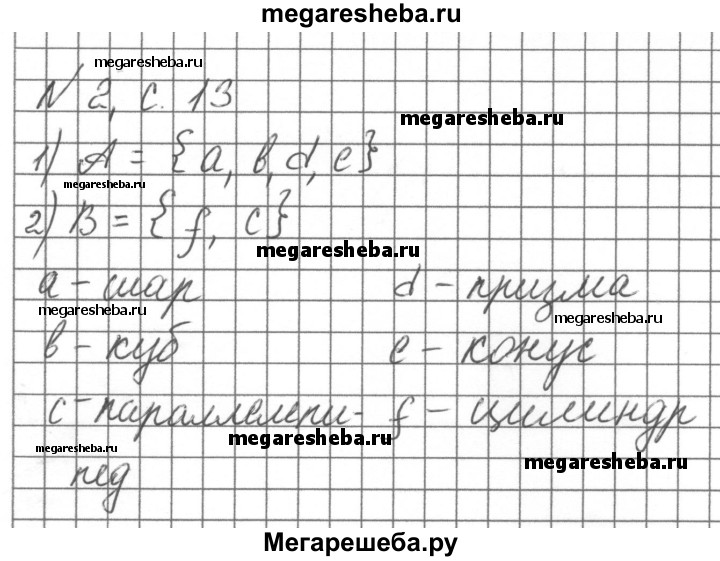 megaresheba.ru
megaresheba.ru
№ 2, с. 13
megaresheba.ru
1) A = {a, b, d, e}
megaresheba.ru
2) B = {f, c}
megaresheba.ru
a - шар
d - призма
megaresheba.ru
megaresheba.ru
b - куб
e - конус
c - параллелепи-
f - цилиндр
megaresheba.ru
megaresheba.ru
megaresheba.ru
пед
Мегарешеба.ру